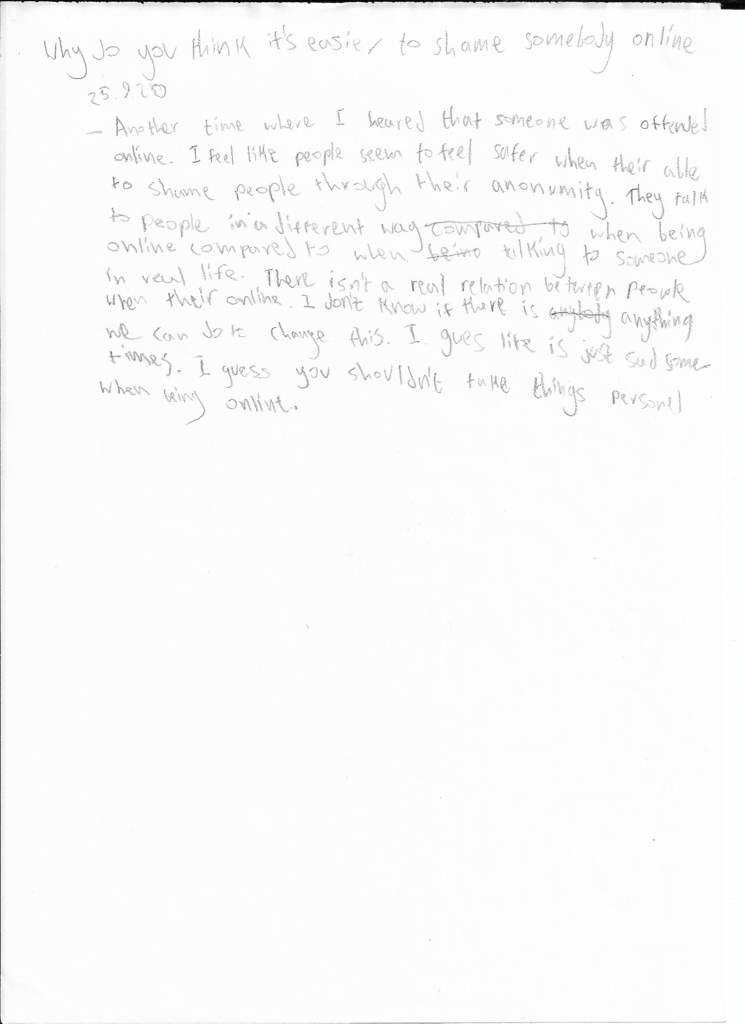 Why do you think it's easier to shame somebody online
25.9.20
- Another time where I heared that someone was offended
online. I feel like people seem to feel safer when their able
to shame people through their anonumity. They talk
to people in a different way compared to when being
online compared to when being talking to someone
in real life. There isn't a real relation between people
when their online. I don't know if there is anybody anything
we can do to change this. I gues life is just sad some-
times. I guess you shouldn't take things personel
when being online.